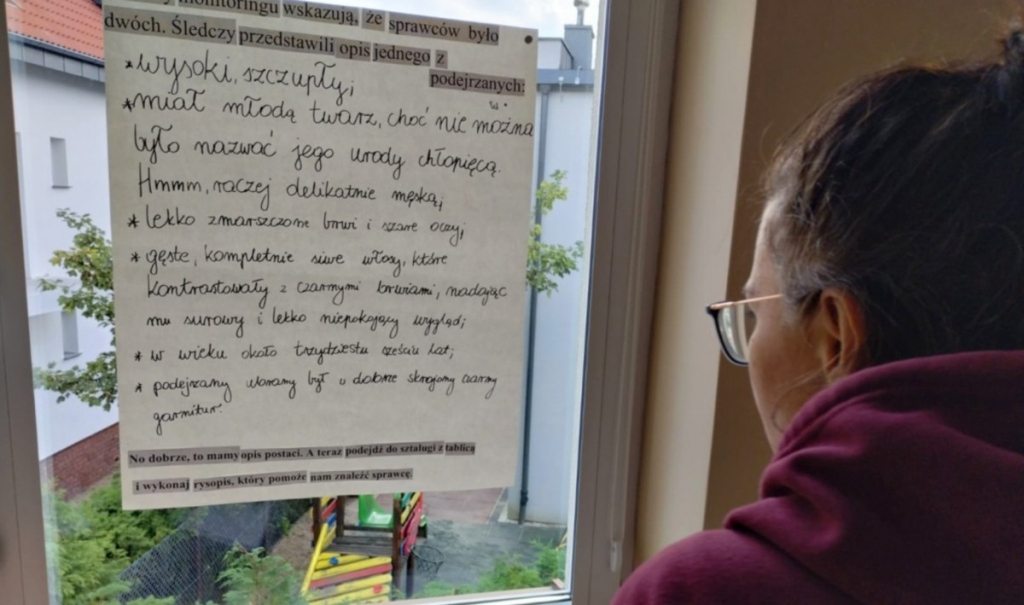 monitoringu wskazują, że sprawców było
dwóch. Śledczy przedstawili opis jednego z
podejrzanych:
*wysoki, szczupły;
*miał młodą twarz, choć nie można
było nazwać jego urody chłopięcą.
Hmmm, raczej delikatnie męską;
* lekko zmarszczone brwi i szare oczy;
* gęste, kompletnie siwe włosy, które
kontrastowały z czarnymi brwiami, nadając
mu surowy i lekko niepokojący wygląd;
* w wieku około trzydziestu sześciu lat;
* podejrzany ubrany był w dobrze skrojony czarny
garnitur.
No dobrze, to mamy opis postaci. A teraz podejdź do sztalugi z tablicą
i wykonaj rysopis, który pomoże nam znaleźć sprawcę.